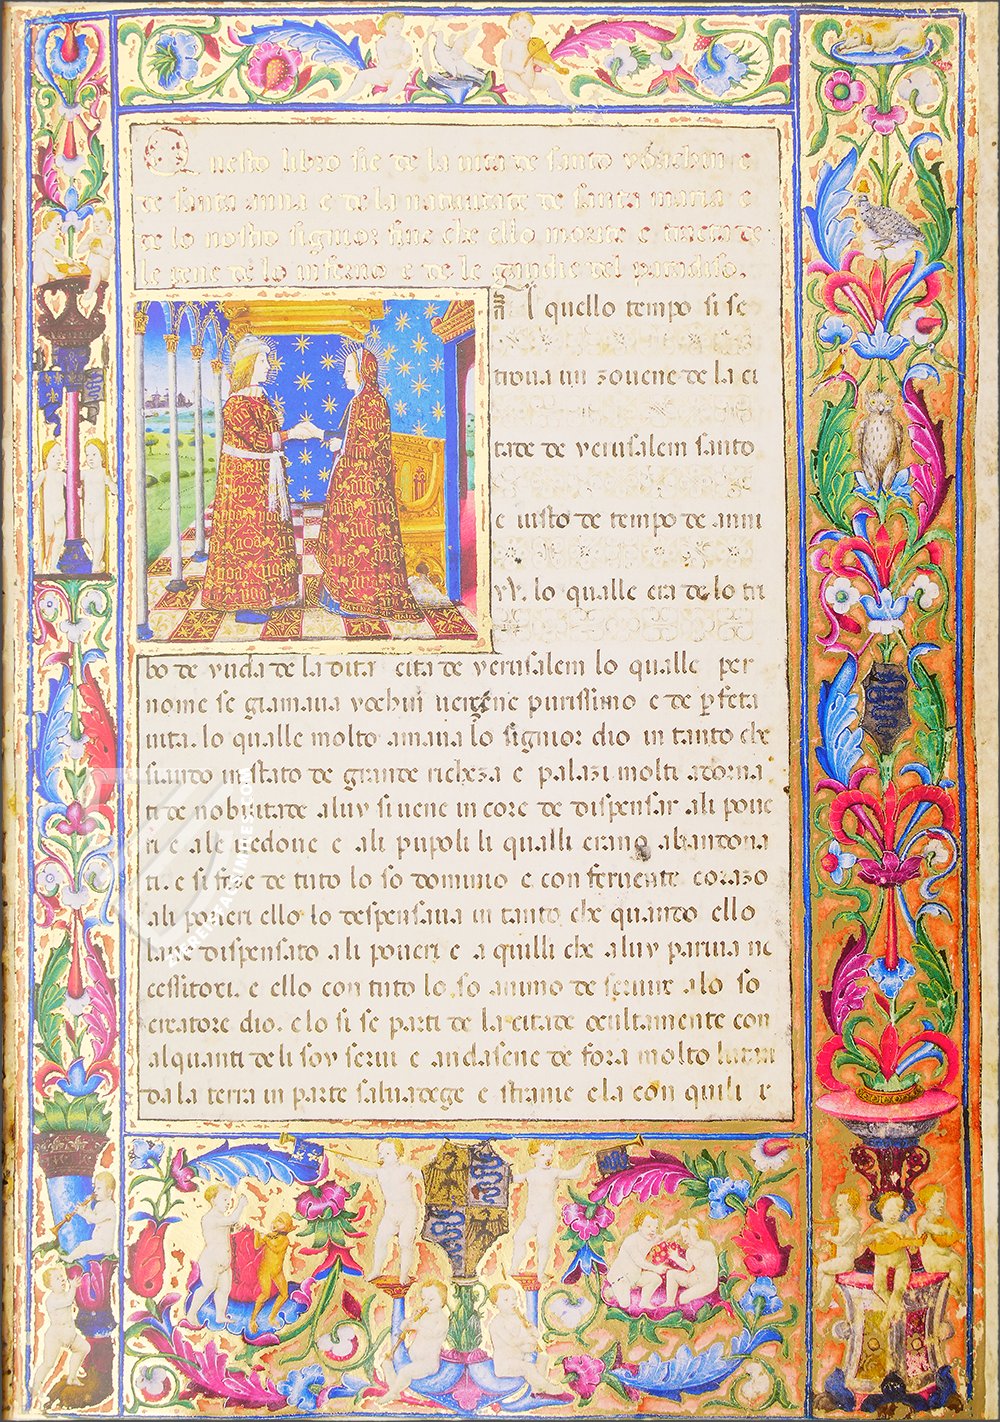 Questo libro sie de la uita de santo yoachin e
de santa anna e de la natiuitate de santa maria e
de lo nostro signior fine che ello morite e tracta de
le pene de lo inferno e de le gaudie del paradiso.
N quello tempo si se
troua un zouene de la ci
tade de yerusalem santo
e iusto de tempo de anni
xv. lo qualle era de lo tri
bo de yuda de la dita cita de yerusalem lo qualle per
nome se giamaua yoachin uergene purissimo e de perfeta
uita. lo qualle molto amaua lo signior dio in tanto che
siando in stato de grande richeza e palazi molti adorna
ti de nobilitade a luy si uene in core de dispensar ali poue
ri e ale uedoue e ali pupoli li qualli erano abandona
ti. e si fece de tuto lo so dominio e con feruente corazo
ali poueri ello lo despensaua in tanto che quando ello
haue dispensato ali poueri e a quilli che a luy pariua ne
cessitori. e ello con tuto lo so animo de seruire a lo so
creatore dio. elo si se parti de la citade ocultamente con
alquanti de li soy serui e andasene de fora molto lutan
da la terra in parte saluadege e stranie e la con quili